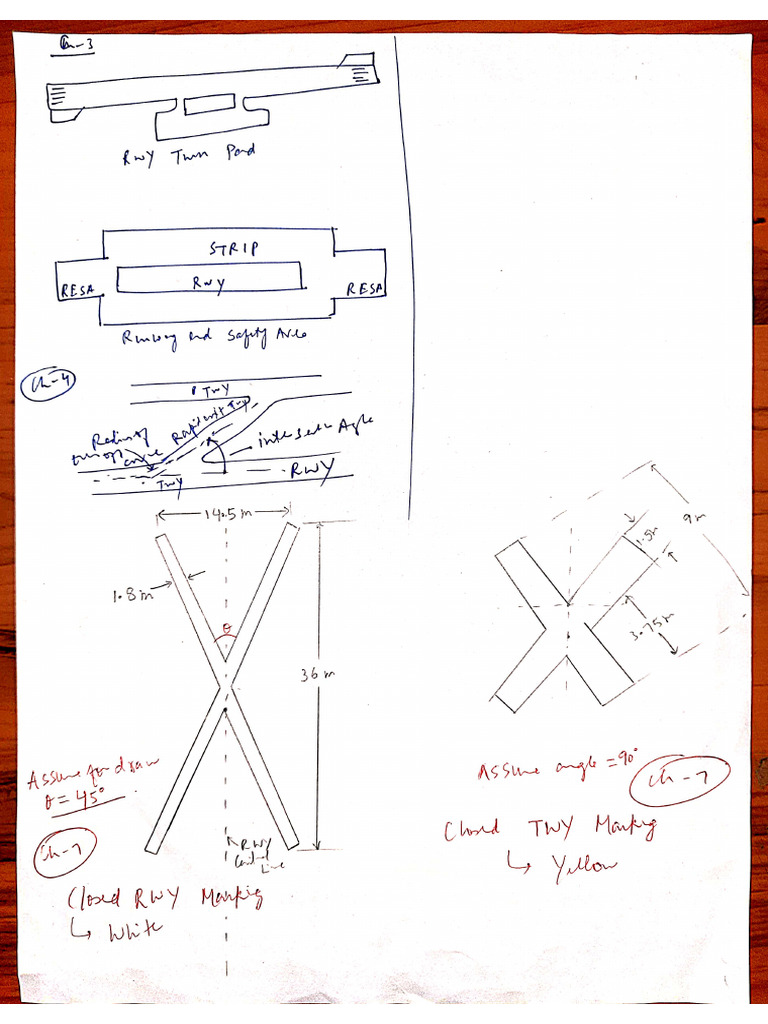 Ch-3
RWY Turn Pad
STRIP
RWY
RESA
RESA
Runway end Safety Area
Ch-4
TWY
Rapid exit TWY
Radius of
turn off
curve
intersection Angle
RWY
TWY
14.5 m
1.8 m
θ
36 m
Assume for draw
θ = 45°
RWY
Central
Line
Ch-7
Closed RWY Marking
↳ White
9 m
1.5m
3.75m
Assume angle = 90°
Ch-7
Closed TWY Marking
↳ Yellow